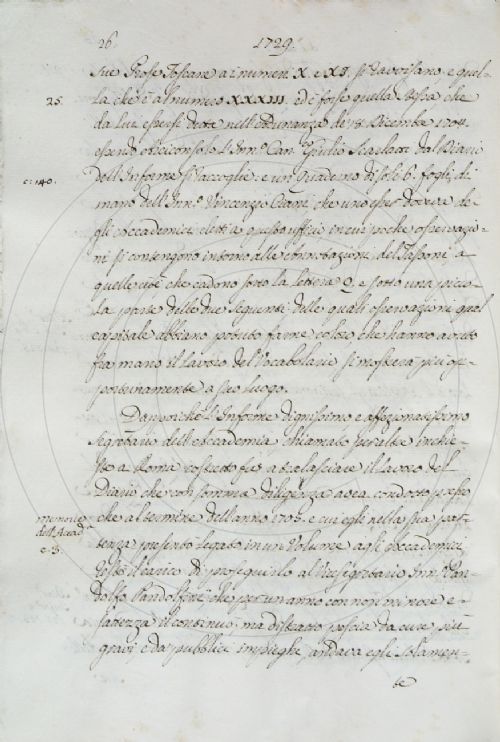 26. 1729.
sue Prose Toscane a i numeri X. e XI. si ravvisano e quel-
la che è al numero XXXIII. ed è forse quella stessa che
25.
da lui essersi detta nell'Adunanza de' 18. Dicembre 1704.
essendo Arciconsolo l'Inn.º Can. Giulio Scarlatti dal Diario
c. 140.
dell'Informe si raccoglie: e un Quaderno di soli 6. fogli di
mano dell'Inn.º Vincenzio che uno esser dovea de-
gli Accademici eletti a quest'uffizio in cui poche osservazio-
ni si contengono intorno alle Annotazioni del Tassoni, a
quelle cioè che cadono sotto la lettera O, e sotto una picco-
la parte delle due seguenti: delle quali osservazioni qual
capitale abbiano potuto farne coloro che hanno avuto
fra mano il lavoro del Vocabolario si mostrerà più op-
portunamente a suo luogo.
Dappoichè l'Informe dignissimo e affezionatissimo
Segretario dell'Accademia chiamato per alte inchie-
ste a Roma costretto fu a tralasciare il lavoro del
Diario, che con somma diligenza avea condotto presso
Memorie dell'Accad.
c. 3.
che al termine dell'anno 1705. e cui egli nella sua par-
tenza presentò legato in un Volume agli Accademici,
tosto il carico di proseguirlo al Vicesegretario Inn.º Pan-
dolfo Pandolfini che per un anno con non minore e-
sattezza il continuò; ma distratto poscia da cure più
gravi, e da pubblici impieghi, andava egli solamen-
te